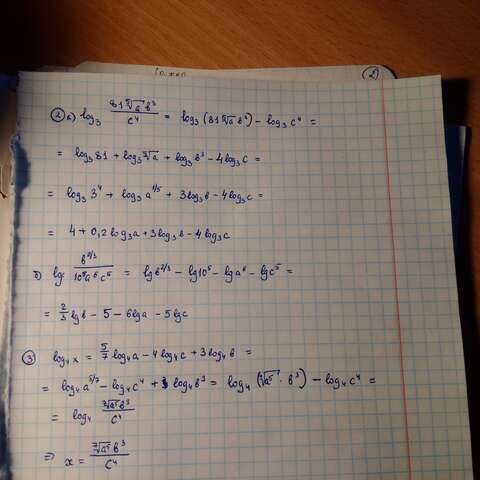 ②
② а) log₃ 81⁵√a b³ / c⁴ = log₃ (81⁵√a b³) − log₃ c⁴ =
= log₃ 81 + log₃ ⁵√a + log₃ b³ − 4log₃ c =
= log₃ 3⁴ + log₃ a^(1/5) + 3log₃ b − 4log₃ c =
= 4 + 0,2 log₃ a + 3log₃ b − 4 log₃ c
б) lg b^(2/3) / 10⁵ a⁶ c⁵ = lg b^(2/3) − lg 10⁵ − lg a⁶ − lg c⁵ =
= 2/3 lg b − 5 − 6lg a − 5lg c
③ log₄ x = 5/7 log₄ a − 4 log₄ c + 3 log₄ b =
= log₄ a^(5/7) − log₄ c⁴ + log₄ b³ = log₄ (⁷√a⁵ · b³) − log₄ c⁴ =
= log₄ ⁷√a⁵ b³ / c⁴
⇒ x = ⁷√a⁵ b³ / c⁴